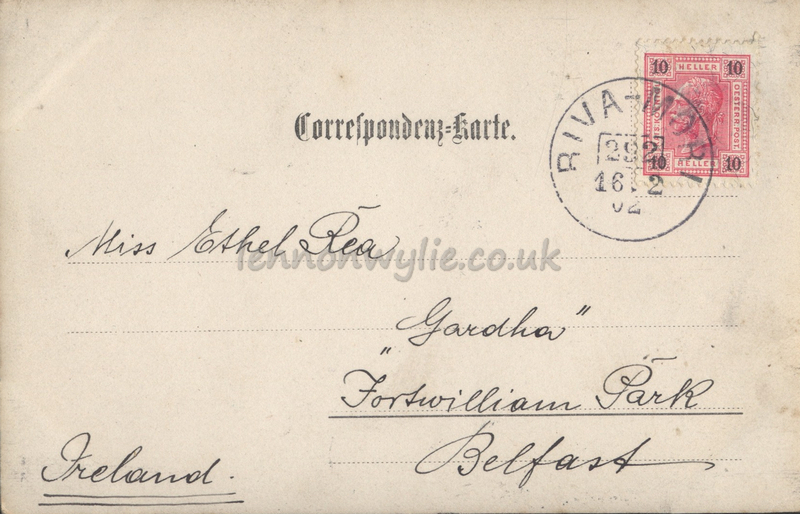 10 HELLER 10
OESTERR.POST.
10 HELLER 10
RIVA-MORI
292
16. 2
02
Correspondenz-Karte.
Miss Ethel Rea
lennonwylie.co.uk
„Gardha”
Fortwilliam Park
Belfast
Ireland.